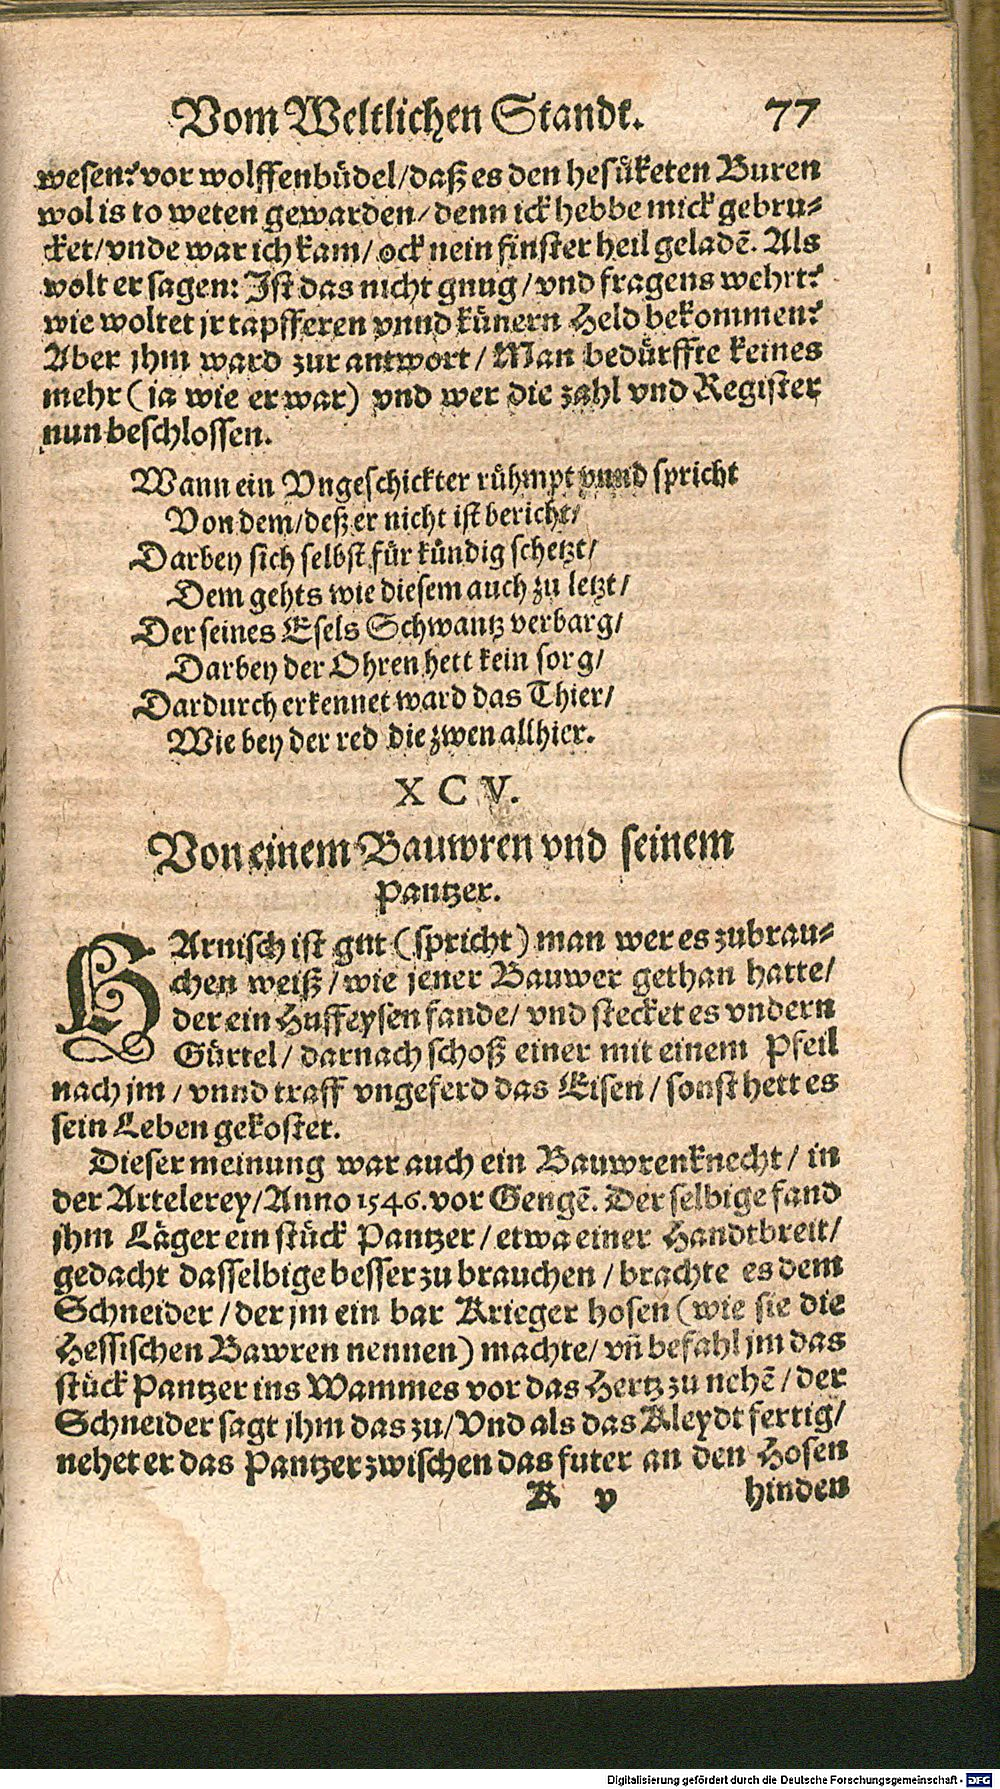 Vom Weltlichen Standt. 77
wesen? vor wolffenbüdel/daß es den hesüketen Buren
wol is to weten gewarden/ denn ick hebbe mick gebru⸗
cket/vnde war ich kam/ ock nein finster heil geladē. Als
wolt er sagen: Ist das nicht gnug/vnd fragens wehrt?
wie woltet jr tapfferen vnnd künern Held bekommen?
Aber jhm ward zur antwort/ Man bedürffte keines
mehr (ja wie er war) vnd wer die zahl vnd Register
nun beschlossen.
Wann ein Vngeschickter rühmpt vnnd spricht
Von dem/deß er nicht ist bericht/
Darbey sich selbst für kündig schetzt/
Dem gehts wie diesem auch zu letzt/
Der seines Esels Schwantz verbarg/
Darbey der Ohren hett kein sorg/
Dardurch erkennet ward das Thier/
Wie bey der red die zwen allhier.
X C V.
Von einem Bauwren vnd seinem
Pantzer.
HArnisch ist gut (spricht) man wer es zubrau⸗
chen weiß/wie jener Bauwer gethan hatte/
der ein Huffeysen fande/ vnd stecket es vndern
Gürtel/ darnach schoß einer mit einem Pfeil
nach jm/ vnnd traff vngeferd das Eisen/ sonst hett es
sein Leben gekostet.
Dieser meinung war auch ein Bauwrenknecht/ in
der Artelerey/Anno 1546. vor Gengē. Derselbige fand
jhm Läger ein stück Pantzer/etwa einer Handtbreit/
gedacht dasselbige besser zu brauchen/brachte es dem
Schneider/der jm ein bar Krieger hosen (wie sie die
Hessischen Bawren nennen) machte/ vn̄ befahl jm das
stück Pantzer ins Wammes vor das Hertz zu nehē/der
Schneider sagt jhm das zu/Vnd als das Kleydt fertig/
nehet er das Pantzer zwischen das futer an den Hosen
K v hinden
Digitalisierung gefördert durch die Deutsche Forschungsgemeinschaft - DFG